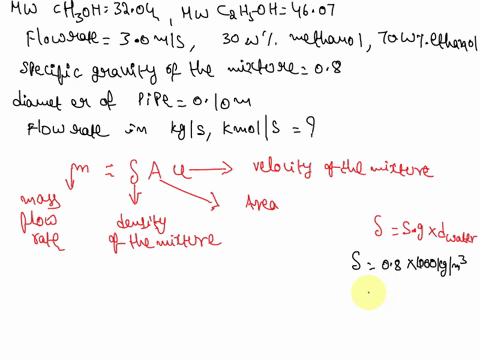 MW CH3OH=32.04, MW C2H5OH=46.07
Flow rate = 3.0 m/s, 30 w% methanol, 70 w% ethanol
specific gravity of the mixture = 0.8
diameter of PiPe = 0.10 m
Flow rate in kg/s, kmol/s = ?
m = δ A u → velocity of the mixture
mass flow rate
density of the mixture
Area
δ = S.g × dwater
δ = 0.8 × 1000 kg/m³